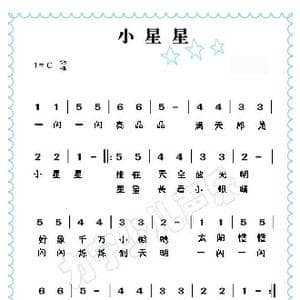 小星星
1=C
1 1 | 5 5 | 6 6 | 5 - | 4 4 | 3 3 |
一闪一闪亮晶晶 满天都是
2 2 | 1 - |: 5 5 | 4 4 | 3 3 | 2 - |
小星星 挂在天空放光明
长着小
5 5 | 4 4 | 3 3 | 2 - | 1 1 | 5 5 |
好像千万小眼睛
闪闪烁烁到天明 一闪一闪
6 6 | 5 - | 4 4 | 3 3 | 2 2 | 1 -